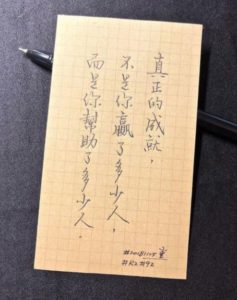 真正的成就，
不是你贏了多少人，
而是你幫助了多少人．
#20181125
#R2#92